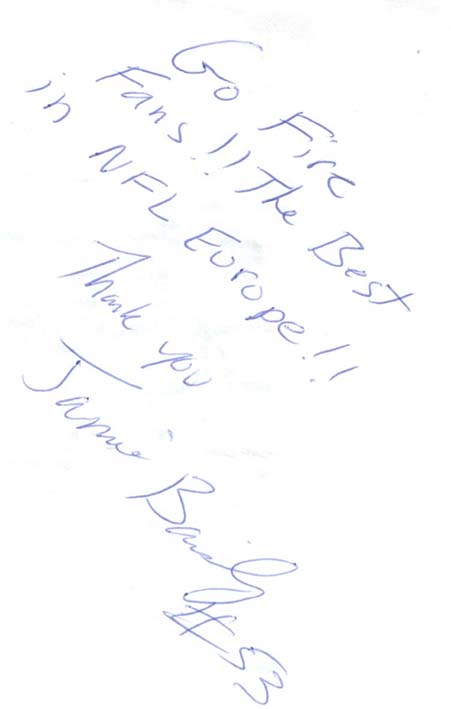 Go Fire
Fans!! The Best
in NFL Europe!!
Thank you
Jamie
#53